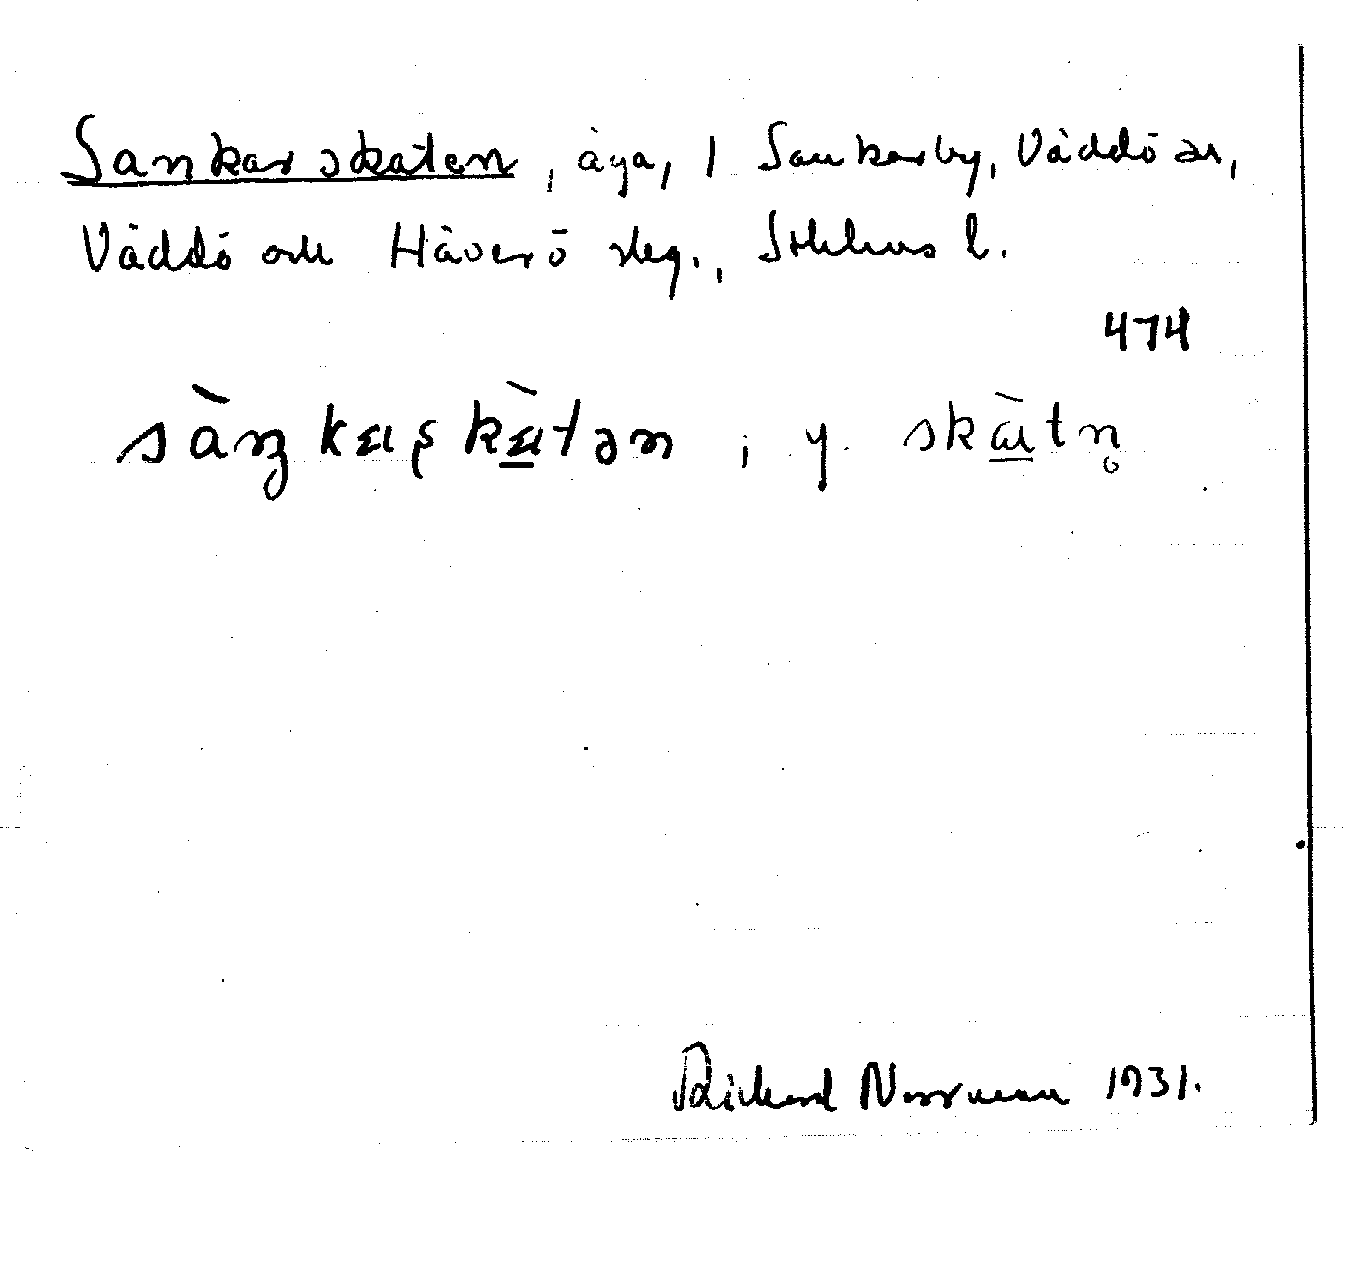 Sankarskaten, äga, 1 Sankarby, Väddö sn,
Väddö och Häverö skg., Sthlms l.
474
sàŋkaʂkàtən, y. skàtn̥
Rickard Norrman 1931.